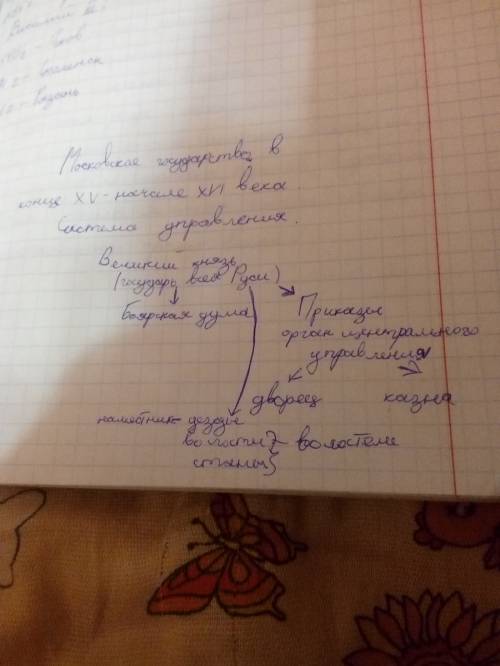 Василий III
Псков
Смоленск
Рязань
Московское государство в
конце XV - начале XVI века.
Система управления.
Великий князь
(государь всея Руси)
Боярская дума
Приказы
орган центрального
управления
дворец казна
наместник - уезды
волости } - волостели
станы }